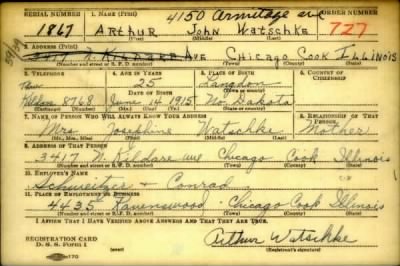 SERIAL NUMBER 1. NAME (Print) 4150 Armitage ave ORDER NUMBER
1867 Arthur John Watschke 727
(First) (Middle) (Last)
2. ADDRESS (Print)
3417 N. Kildare Ave Chicago Cook Illinois
(Number and street or R. F. D. number) (Town) (County) (State)
3. TELEPHONE 4. AGE IN YEARS 5. PLACE OF BIRTH 6. COUNTRY OF CITIZENSHIP
25 Langdon
DATE OF BIRTH (Town or county)
Kildare 8768 June 14 1915 No. Dakota
(Exchange) (Number) (Mo.) (Day) (Yr.) (State or country)
7. NAME OF PERSON WHO WILL ALWAYS KNOW YOUR ADDRESS 8. RELATIONSHIP OF THAT PERSON
Mrs Josephine Watschke Mother
(Mr., Mrs., Miss) (First) (Middle) (Last)
9. ADDRESS OF THAT PERSON
3417 N. Kildare ave Chicago Cook Illinois
(Number and street or R. F. D. number) (Town) (County) (State)
10. EMPLOYER'S NAME
Schweitzer & Conrad
11. PLACE OF EMPLOYMENT OR BUSINESS
4435 Ravenswood Chicago Cook Illinois
(Number and street or R. F. D. number) (Town) (County) (State)
I AFFIRM THAT I HAVE VERIFIED ABOVE ANSWERS AND THAT THEY ARE TRUE.
REGISTRATION CARD
D. S. S. Form 1 (over) Arthur Watschke
(Registrant's signature)